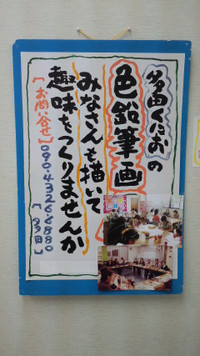 多田くにおの
色鉛筆画
みなさんも描いて
趣味をつくりませんか
[お問い合せ] 090-4326-6880
[多田]